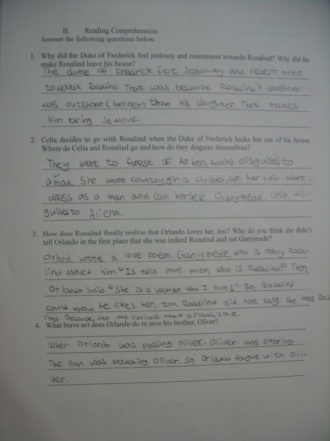 II. Reading Comprehension
Answer the following questions below.
1. Why did the Duke of Frederick feel jealousy and resentment towards Rosalind? Why did he
make Rosalind leave his house?
The duke of Fredrick felt jealousy and resentment
towards Rosalind. That was because Rosalind
was outshone (better) than his daughter that makes
him being jealous.
2. Celia decides to go with Rosalind when the Duke of Frederick kicks her out of his house.
Where do Celia and Rosalind go and how do they disguise themselves?
They went to forest of Arden
She wore clothes cut her hair short
dress as a man and call herself Ganymede. Celia dis-
guised to Aliena.
3. How does Rosalind finally realize that Orlando loves her, too? Why do you think she didn't
tell Orlando in the first place that she was indeed Rosalind and not Ganymede?
Orland wrote a love poem. Ganymede, who is really Rosa-
lind asked him "Is this love poem who is Rosalind?" Then
Orlando said "She is a woman who I love!" So Rosalind
could know he likes her, too. Rosalind did not say she was Rosa-
lind. Because she was curious about
4. What brave act does Orlando do to save his brother, Oliver?
When Orlando was passing Oliver. Oliver was
The lion was Oliver. So Orlando fought with